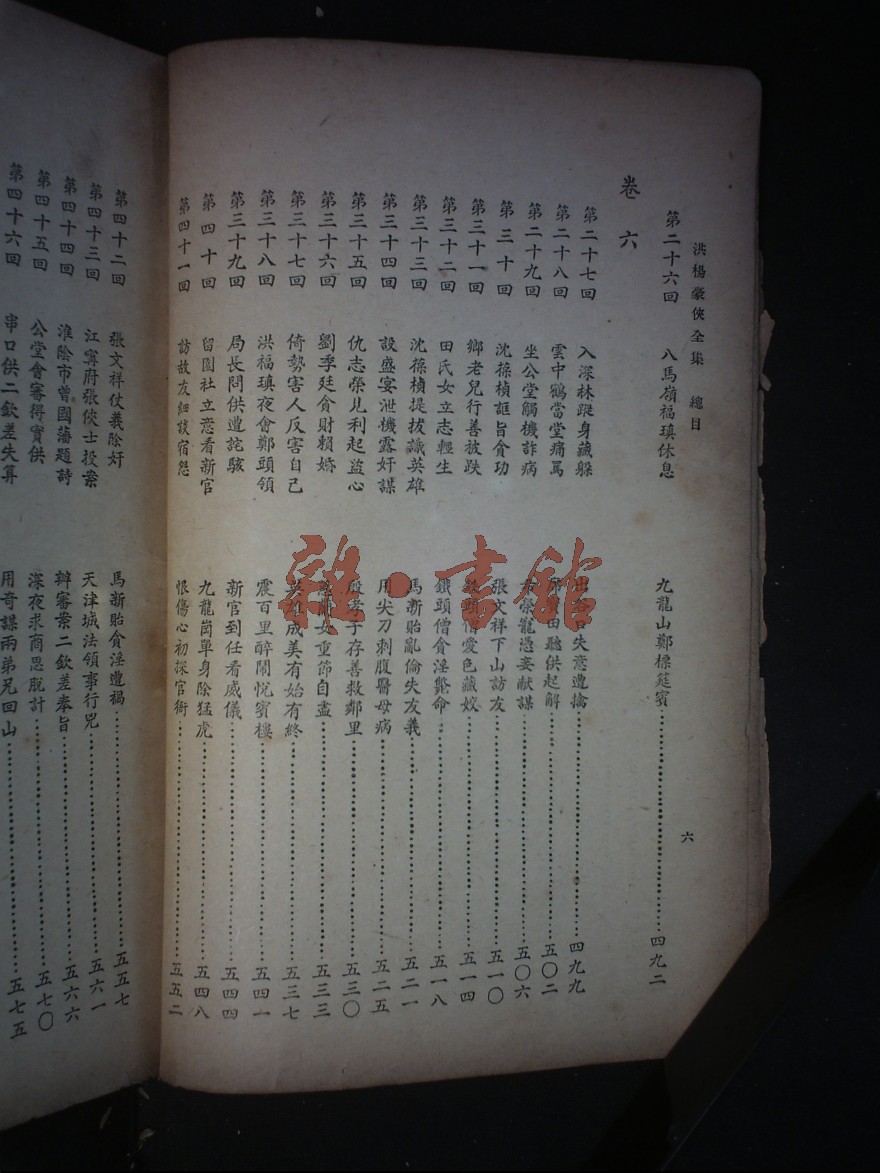 洪楊豪俠全集　總目　六
第二十六回　八馬嶺福瑱休息　九龍山鄭標筵賓　四九二
卷六
第二十七回　入深林蹤身藏躲　出谷口失意遭擒　四九九
第二十八回　雲中鶴當堂痛罵　田聽供起解　五〇二
第二十九回　坐公堂觸機詐病　榮龍憑妾献謀　五〇六
第三十回　沈葆楨誆旨貪功　張文祥下山訪友　五一〇
第三十一回　鄉老兒行善被跌　鐵頭僧愛色藏姣　五一四
第三十二回　田氏女立志輕生　鐵頭僧貪淫斃命　五一八
第三十三回　沈葆楨提拔識英雄　馬新貽亂倫失友義　五二一
第三十四回　設盛宴泄機露奸謀　用尖刀刺腹醫母病　五二五
第三十五回　仇志榮見利起盜心　殷孝子存善救鄰里　五三〇
第三十六回　劉季廷貪財賴婚　女重節自盡　五三三
第三十七回　倚勢害人反害自己　英雄成美有始有終　五三七
第三十八回　洪福瑱夜會鄭頭領　震百里醉鬧悅賓樓　五四一
第三十九回　局長問供遭詫駭　新官到任看威儀　五四四
第四十回　留園社立意看新官　九龍崗單身除猛虎　五四八
第四十一回　訪故友細談宿怨　恨傷心初探官衙　五五二
第四十二回　張文祥仗義除奸　馬新貽貪淫遭禍　五五七
第四十三回　江寧府張俠士投案　天津城法領事行兇　五六一
第四十四回　淮陰市曾國藩題詩　辦審案二欽差奉旨　五六六
第四十五回　公堂會審得實供　深夜求商思脫計　五七〇
第四十六回　串口供二欽差失算　用奇謀兩弟兄回山　五七五
雜·書館